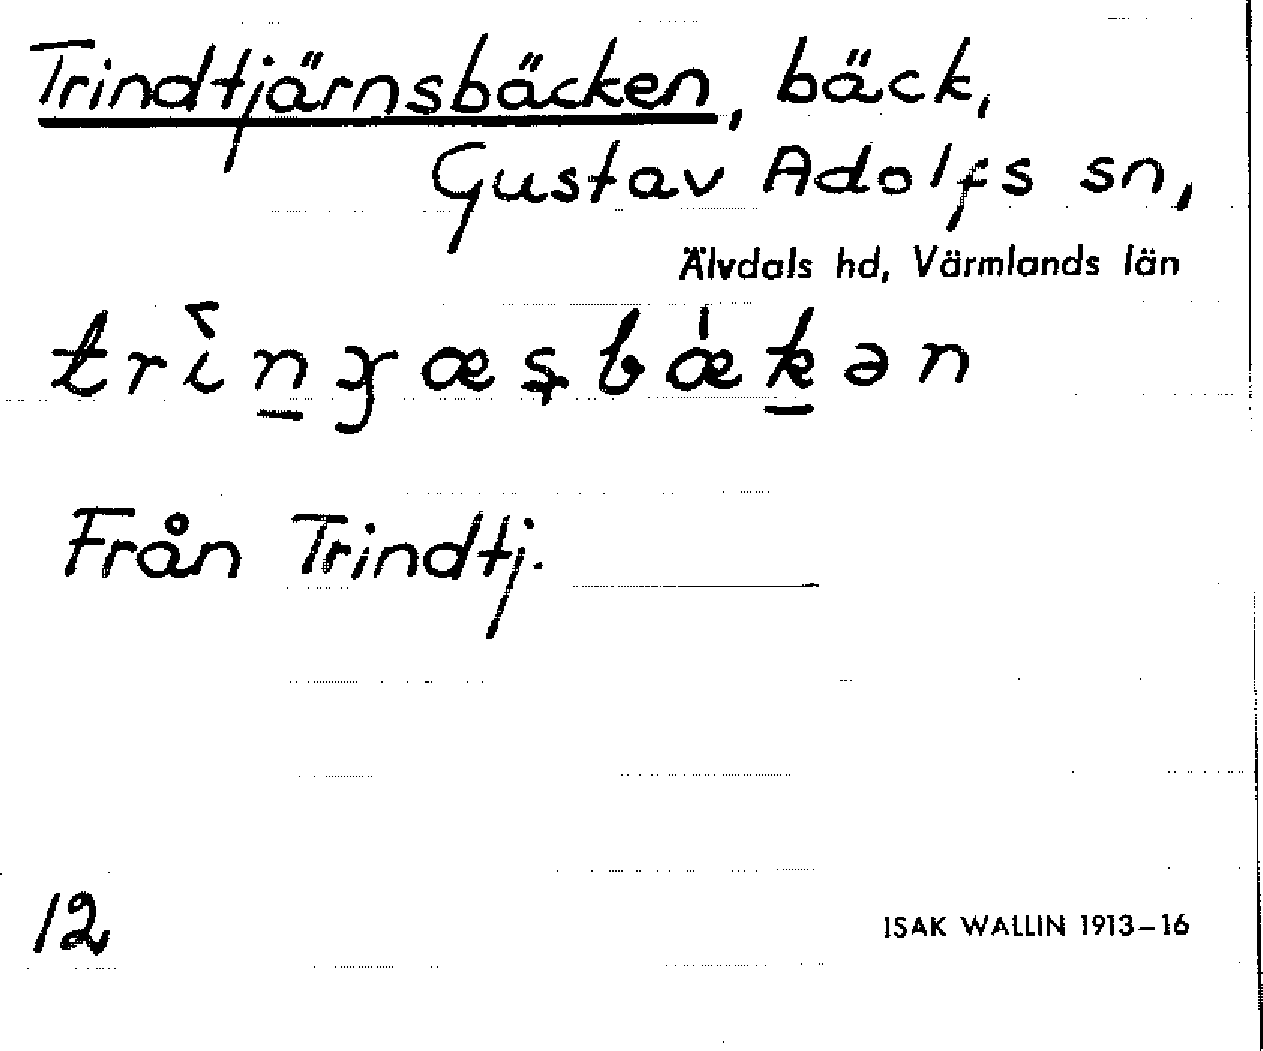 Trindtjärnsbäcken, bäck,
Gustav Adolfs sn,
Älvdals hd, Värmlands län
Från Trindtj.
12
ISAK WALLIN 1913–16